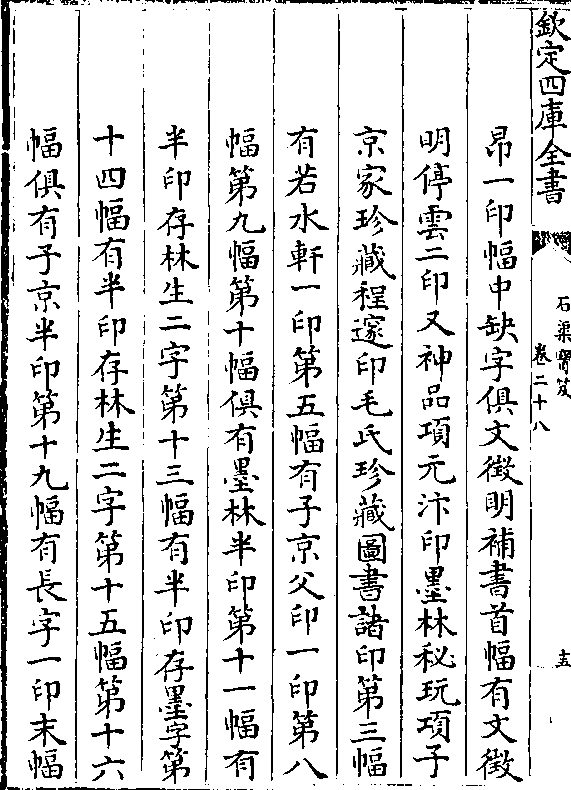 欽定四庫全書
石渠寶笈
卷二十八
十五
昂一印幅中缺字俱文徵明補書首幅有文徵
明停雲二印又神品項元汴印墨林秘玩項子
京家珍藏程邃印毛氏珍藏圖書諸印第三幅
有若水軒一印第五幅有子京父印一印第八
幅第九幅第十幅俱有墨林半印第十一幅有
半印存林生二字第十三幅有半印存墨字第
十四幅有半印存林生二字第十五幅第十六
幅俱有子京半印第十九幅有長字一印末幅